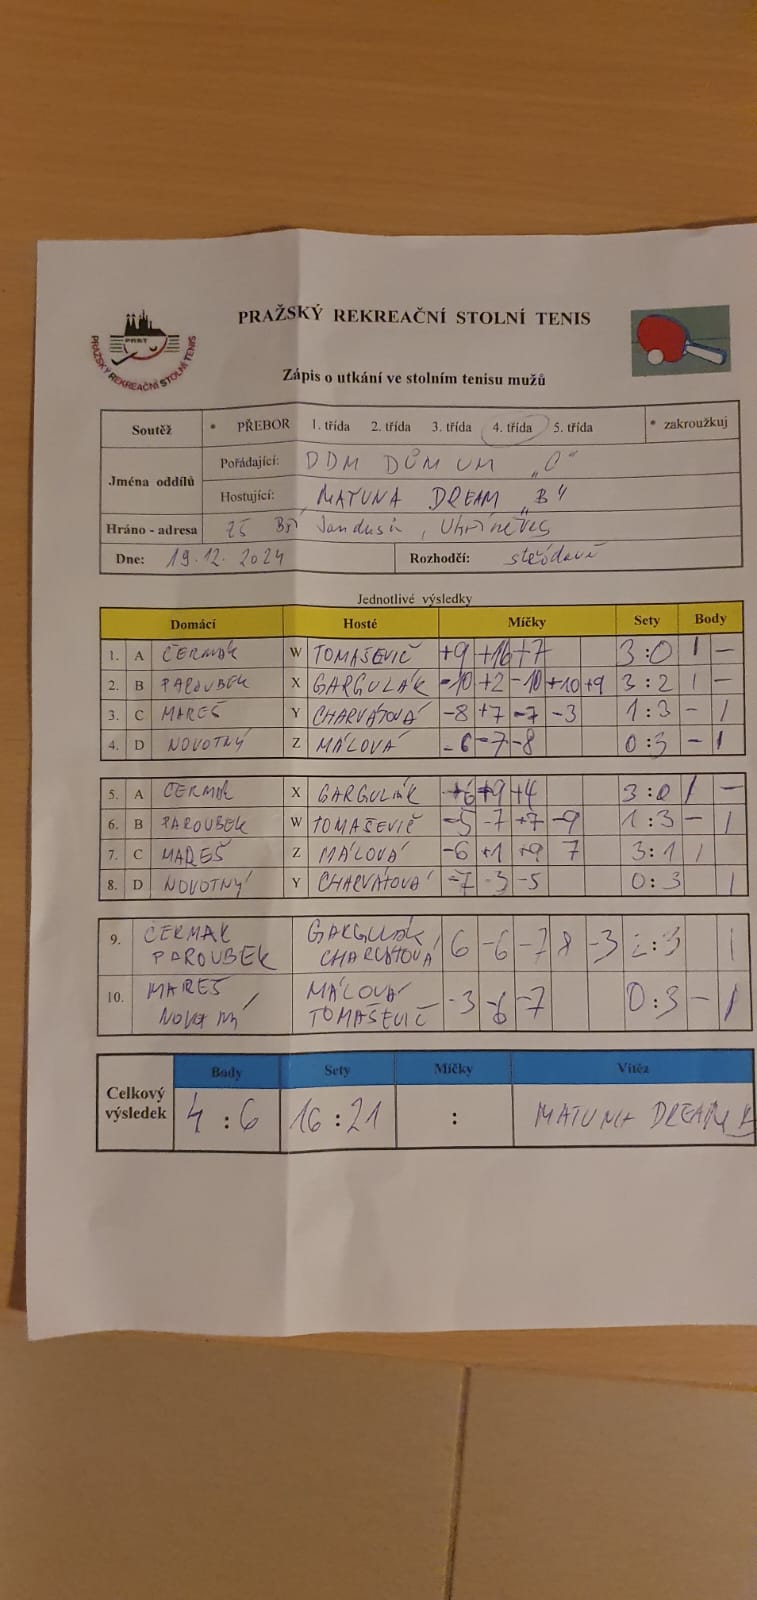 PRAŽSKÝ REKREAČNÍ STOLNÍ TENIS
PRST
PRAŽSKÝ REKREAČNÍ STOLNÍ TENIS
Zápis o utkání ve stolním tenisu mužů
Soutěž * PŘEBOR 1. třída 2. třída 3. třída 4. třída 5. třída * zakroužkuj
Jména oddílů
Pořádající: DDM DŮM UM „C"
Hostující: MATUNA DREAM „B"
Hráno - adresa 25 , Uhříněves
Dne: 19.12.2024 Rozhodčí: střídavě
Jednotlivé výsledky
Domácí Hosté Míčky Sety Body
1. A ČERMAK W TOMAŠEVIČ +9 +16 +7 3:0 1 –
2. B PAROUBEK X GARGULÁK -10 +2 -10 +10 +9 3:2 1 –
3. C MAREŠ Y CHARVÁTOVÁ -8 +7 -7 -3 1:3 – 1
4. D NOVOTNÝ Z MÁLOVÁ -6 -7 -8 0:3 – 1
5. A ČERMAK X GARGULÁK +6 +9 +4 3:0 1 –
6. B PAROUBEK W TOMAŠEVIČ -5 -7 +7 -9 1:3 – 1
7. C MAREŠ Z MÁLOVÁ -6 +1 +9 7 3:1 1
8. D NOVOTNÝ Y CHARVÁTOVÁ -7 -3 -5 0:3 1
9. ČERMAK PAROUBEK GARGULÁK CHARVÁTOVÁ 6 -6 -7 8 -3 2:3 1
10. MAREŠ NOVOTNÝ MÁLOVÁ TOMAŠEVIČ -3 -6 -7 0:3 – 1
Celkový výsledek
Body Sety Míčky Vítěz
4 : 6 16 : 21 : MATUNA DREAM B